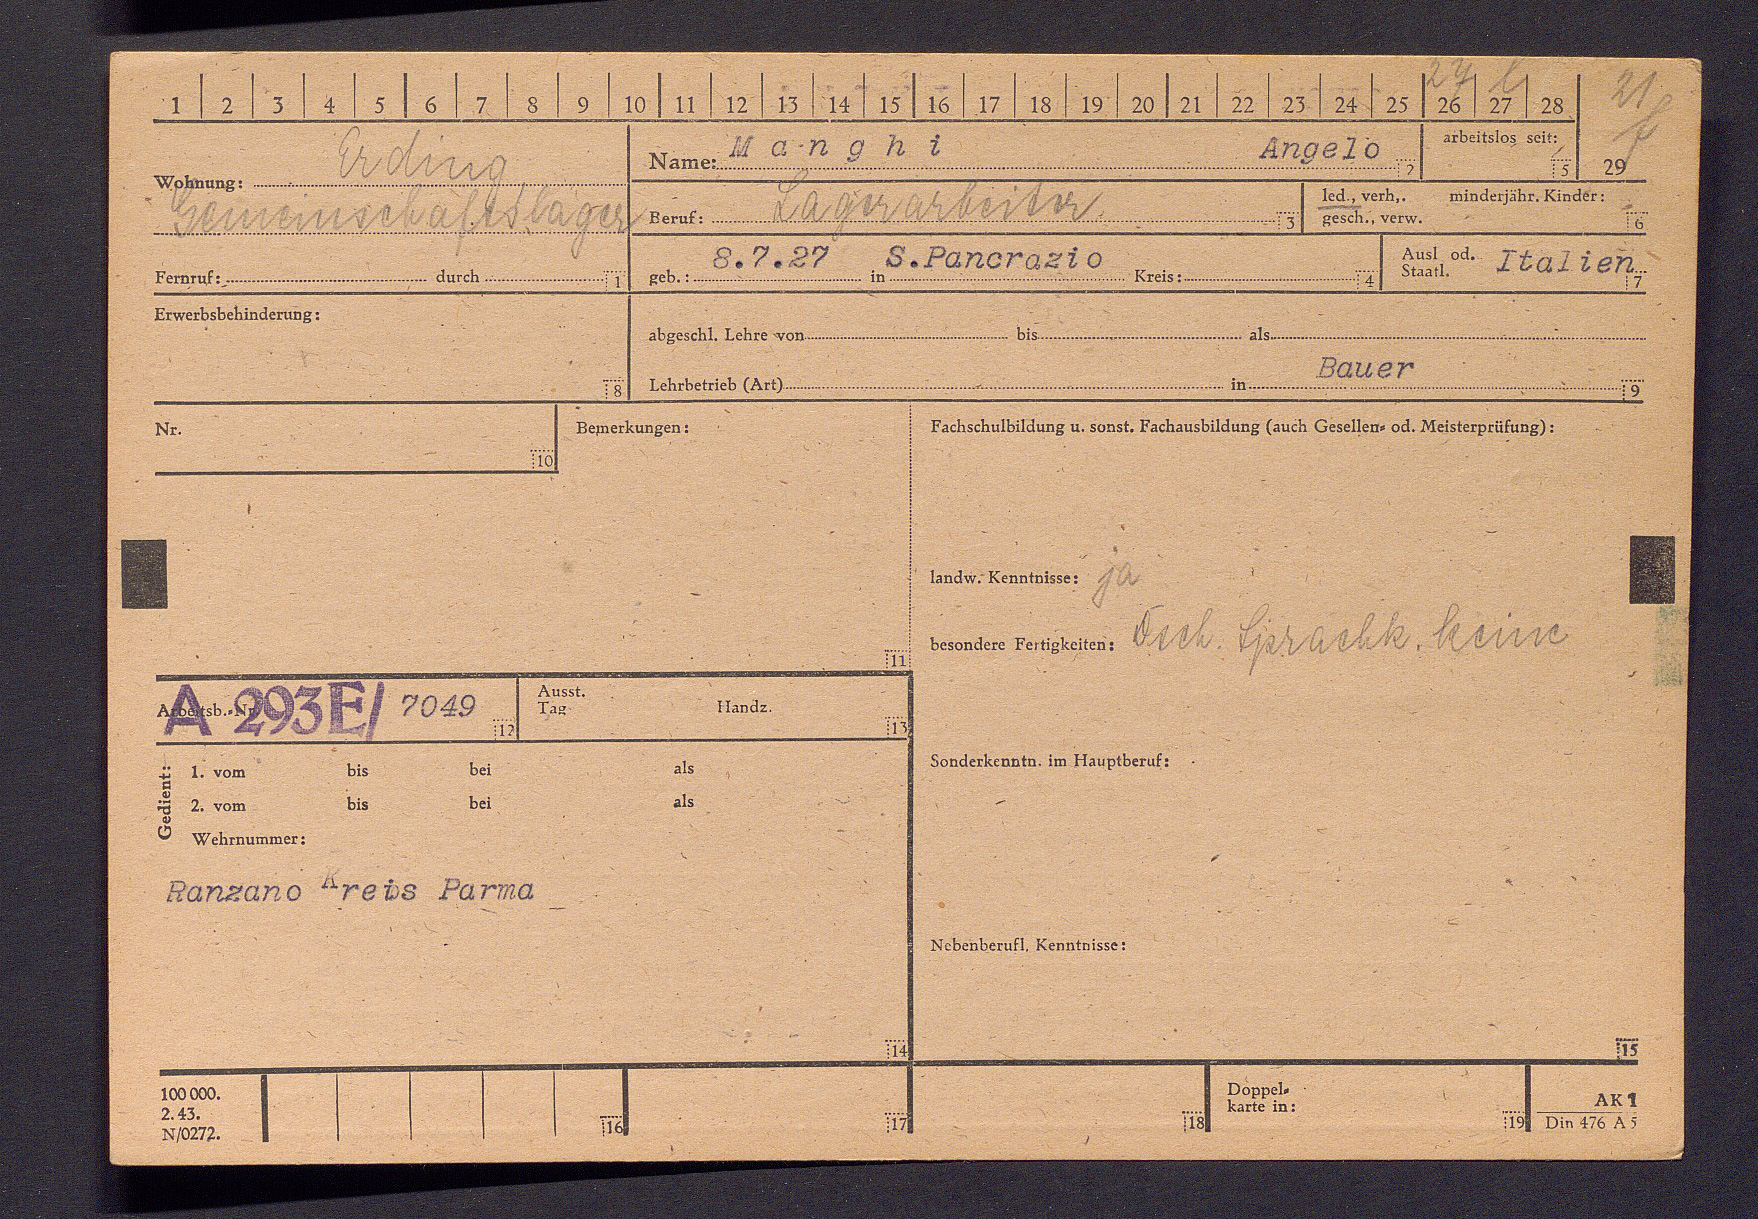 27 l
21 f
1 2 3 4 5 6 7 8 9 10 11 12 13 14 15 16 17 18 19 20 21 22 23 24 25 26 27 28
29
Wohnung: Erding
Gemeinschaftslager
Fernruf: durch 1
Name: Manghi Angelo 2
arbeitslos seit: 5
Beruf: Lagerarbeiter 3
led., verh,. minderjähr. Kinder:
gesch., verw. 6
geb.: 8.7.27 in S.Pancrazio Kreis: 4
Ausl od. Staatl. Italien 7
Erwerbsbehinderung:
8
abgeschl. Lehre von bis als
Lehrbetrieb (Art) in Bauer 9
Nr.
10
Bemerkungen:
11
Fachschulbildung u. sonst. Fachausbildung (auch Gesellen= od. Meisterprüfung):
landw. Kenntnisse: ja
besondere Fertigkeiten: Dsch. Sprachk. keine
Arbeitsb.-Nr. A 293E/ 7049 12
Ausst. Tag Handz. 13
Gedient:
1. vom bis bei als
2. vom bis bei als
Wehrnummer:
Ranzano Kreis Parma
14
Sonderkenntn. im Hauptberuf:
Nebenberufl. Kenntnisse:
15
100 000.
2. 43.
N/0272.
16 17 18
Doppel=
karte in: 19
AK 1
Din 476 A 5